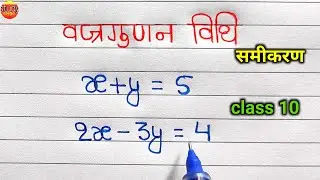 वज्रगुणन विधि
समीकरण
x+y = 5
class 10
2x-3y = 4